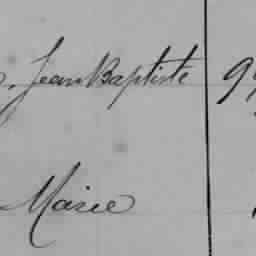 Jean Baptiste
Marie